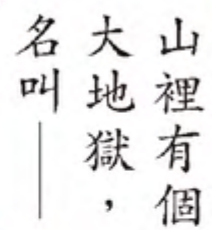 山裡有個
大地獄，
名叫——